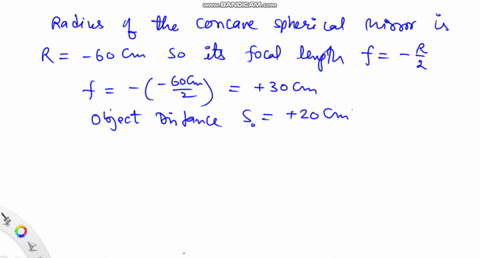 www.BANDICAM.com
Radius of the concave spherical mirror is
R = -60 cm so its focal length f = - R/2
f = - (-60cm/2) = +30 cm
object Distance S₀ = +20 cm